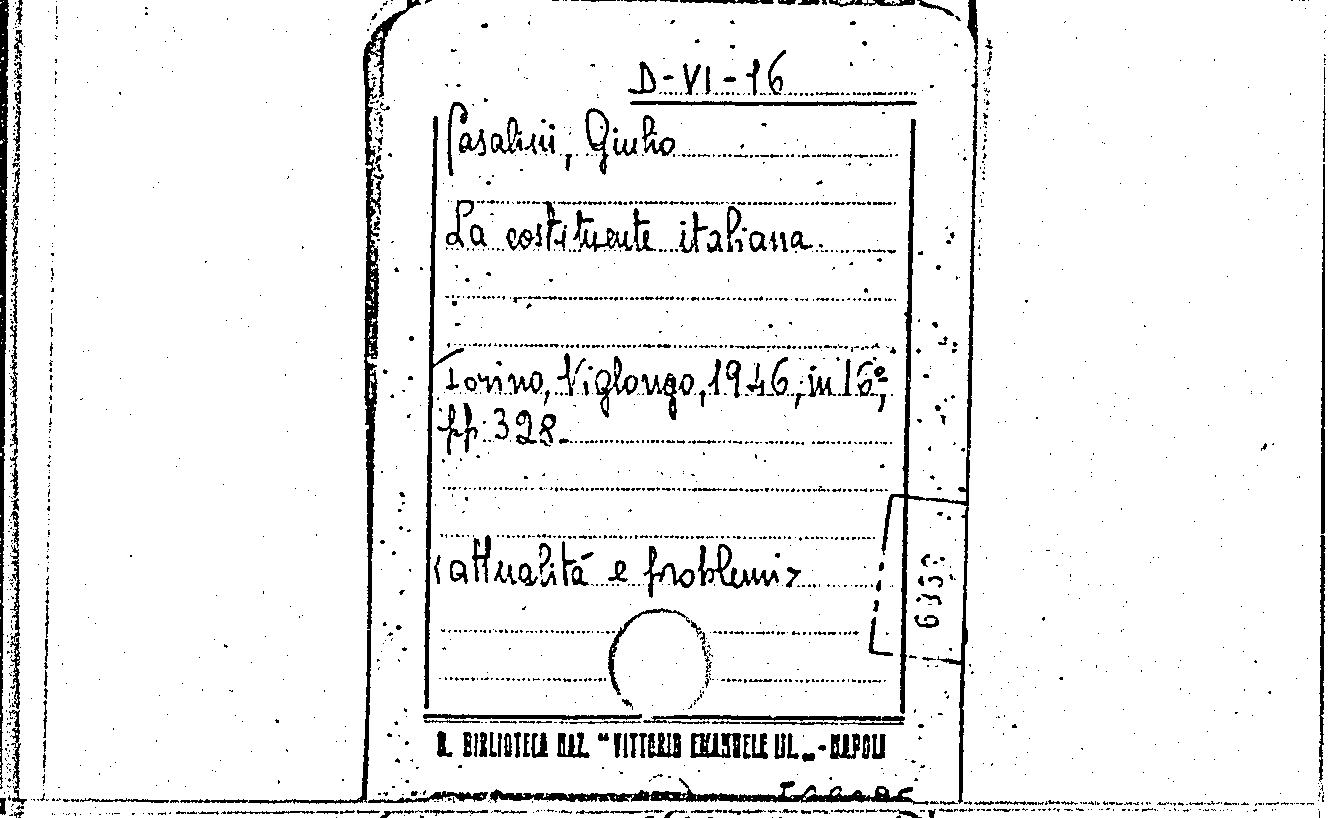 D-VI-16
Casalini, Giulio
La costituente italiana.
Torino, Viglongo, 1946, in 16º,
pp. 328.
(attualità e problemi)
R. BIBLIOTECA NAZ. "VITTORIO EMANUELE III" - NAPOLI